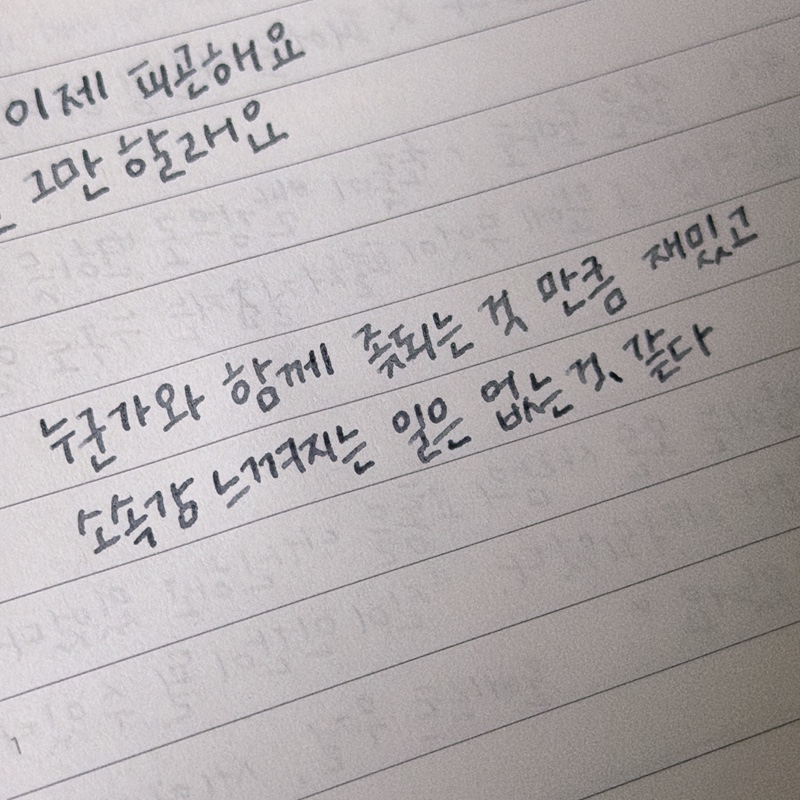 이제 피곤해요
그만 할래요
누군가와 함께 좆되는 것 만큼 재밌고
소속감 느껴지는 일은 없는 것 같다